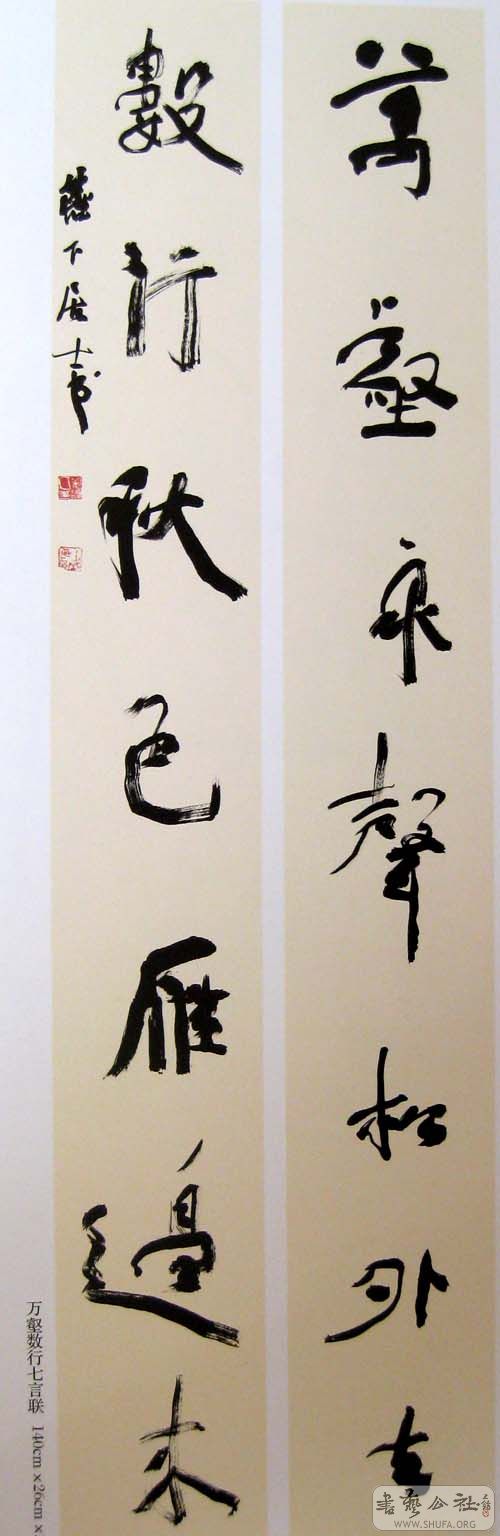 萬壑泉聲松外去
數行秋色雁邊来
下居士书
万壑数行七言联 140cm×26cm×
書藝公社
WWW.SHUFA.ORG